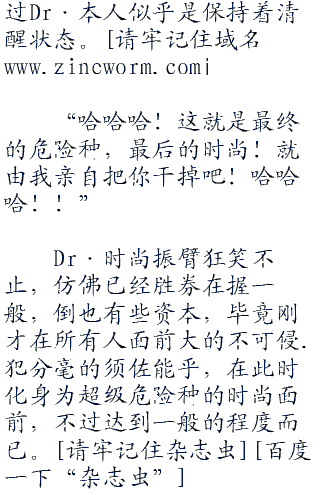 过Dr·本人似乎是保持着清
醒状态。[请牢记住域名
www.zincworm.com|
“哈哈哈！这就是最终
的危险种，最后的时尚！就
由我亲自把你干掉吧！哈哈
哈！！”
Dr·时尚振臂狂笑不
止，仿佛已经胜券在握一
般，倒也有些资本，毕竟刚
才在所有人面前大的不可侵.
犯分毫的须佐能乎，在此时
化身为超级危险种的时尚面
前，不过达到一般的程度而
已。[请牢记住杂志虫][百度
一下“杂志虫”]